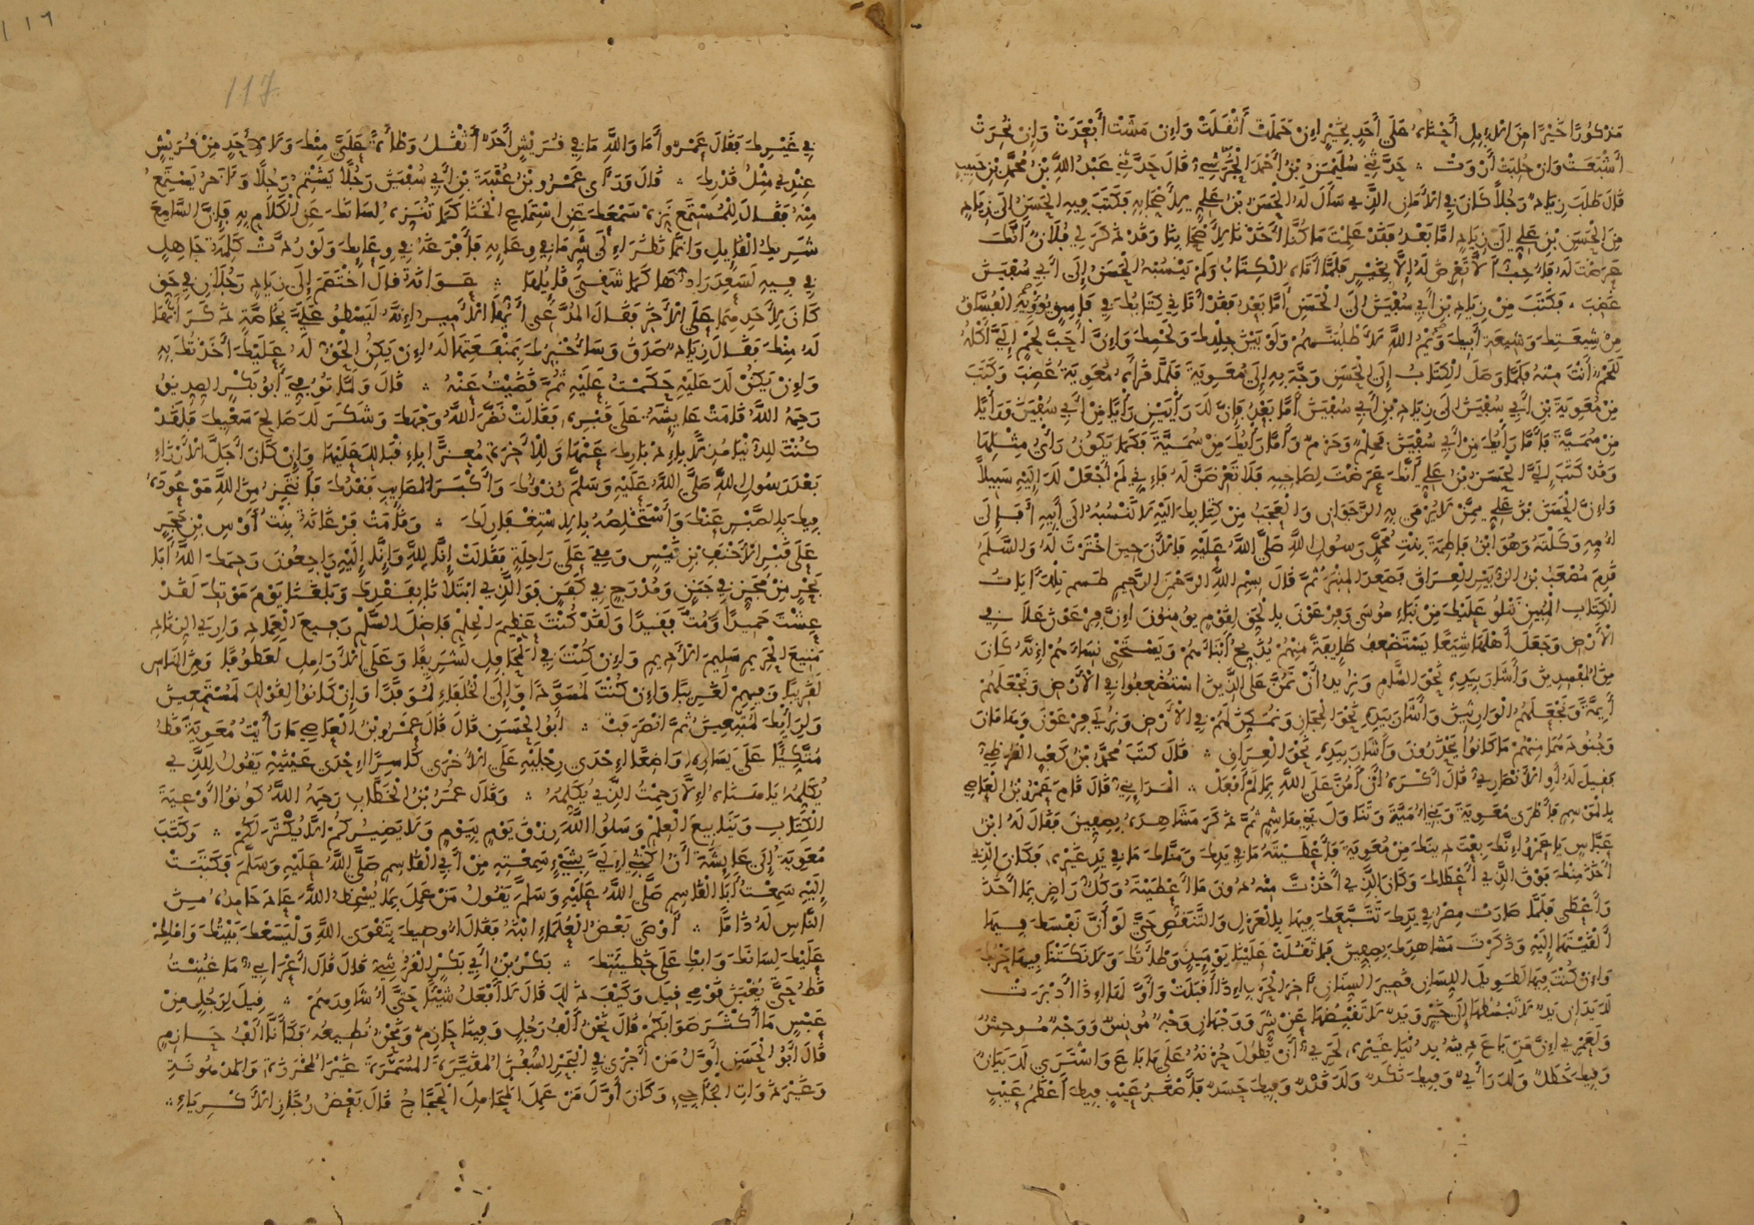 مَذْكُورًا خَيْرًا مِنَ الْإِبِلِ أَجْنَاءُ عَلَى أَحَدٍ بِخَيْرٍ إِنْ حَمَلَتْ أَثْقَلَتْ وَإِنْ مَشَتْ أَبْعَدَتْ وَإِنْ نُحِرَتْ
أَشْبَعَتْ وَإِنْ حُلِبَتْ أَرْوَتْ ۞ حَدَّثَنِي سُلَيْمَنُ بْنُ أَحْمَدَ الْخَرَشِيُّ قَالَ حَدَّثَنِي عَبْدُ اللَّهِ بْنُ مُحَمَّدِ بْنِ حَبِيبٍ
قَالَ طَلَبَ زِيَادٌ رَجُلًا كَانَ فِي الْأَمَانِ الَّذِي سَأَلَ لَهُ الْحَسَنُ بْنُ عَلِيٍّ لِأَصْحَابِهِ فَكَتَبَ فِيهِ الْحَسَنُ إِلَى زِيَادٍ
مِنَ الْحَسَنِ بْنِ عَلِيٍّ إِلَى زِيَادٍ أَمَّا بَعْدُ فَقَدْ عَلِمْتَ مَا كُنَّا أَخَذْنَا لِأَصْحَابِنَا وَقَدْ ذَكَرَ لِي فُلَانٌ أَنَّكَ
عَرَضْتَ لَهُ فَأُحِبُّ أَلَّا تَعْرِضَ لَهُ إِلَّا بِخَيْرٍ فَلَمَّا أَتَاهُ الْكِتَابُ وَلَمْ يَنْسُبْهُ الْحَسَنُ إِلَى أَبِي سُفْيَنَ
غَضِبَ فَكَتَبَ مِنْ زِيَادِ بْنِ أَبِي سُفْيَنَ إِلَى الْحَسَنِ أَمَّا بَعْدُ فَقَدْ أَتَانِي كِتَابُكَ فِي فَاسِقٍ يُؤْوِيهِ الْفُسَّاقُ
مِنْ شِيعَتِكَ وَشِيعَةِ أَبِيكَ وَايْمُ اللَّهِ لَأَطْلُبَنَّهُمْ وَلَوْ بَيْنَ جِلْدِكَ وَلَحْمِكَ وَإِنَّ أَحَبَّ لَحْمٍ إِلَيَّ آكُلُهُ
لَلَحْمٌ أَنْتَ مِنْهُ فَلَمَّا وَصَلَ الْكِتَابُ إِلَى الْحَسَنِ وَجَّهَ بِهِ إِلَى مُعَوِيَةَ فَلَمَّا قَرَأَهُ مُعَوِيَةُ غَضِبَ وَكَتَبَ
مِنْ مُعَوِيَةَ بْنِ أَبِي سُفْيَنَ إِلَى زِيَادِ بْنِ أَبِي سُفْيَنَ أَمَّا بَعْدُ فَإِنَّ لَكَ رَأْيَيْنِ رَأْيًا مِنْ أَبِي سُفْيَنَ وَرَأْيًا
مِنْ سُمَيَّةَ فَأَمَّا رَأْيُكَ مِنْ أَبِي سُفْيَنَ فَحِلْمٌ وَحَزْمٌ وَأَمَّا رَأْيُكَ مِنْ سُمَيَّةَ فَكَمَا يَكُونُ رَأْيُ مِثْلِهَا
وَقَدْ كَتَبَ إِلَيَّ الْحَسَنُ بْنُ عَلِيٍّ أَنَّكَ عَرَضْتَ لِصَاحِبِهِ فَلَا تَعْرِضَنَّ لَهُ فَإِنِّي لَمْ أَجْعَلْ لَكَ إِلَيْهِ سَبِيلًا
وَإِنَّ الْحَسَنَ بْنَ عَلِيٍّ مِمَّنْ لَا يُرْمَى بِهِ الرَّجَوَانِ وَالْعَجَبُ مِنْ كِتَابِكَ إِلَيْهِ لَا تَنْسُبُهُ إِلَى أَبِيهِ أَفَإِلَى
أُمِّهِ وَكَلْتَهُ وَهُوَ ابْنُ فَاطِمَةَ بِنْتِ مُحَمَّدٍ رَسُولِ اللَّهِ صَلَّى اللَّهُ عَلَيْهِ فَالْآنَ حِينَ اخْتَرْتَ لَهُ وَالسَّلَمُ
قَدِمَ مُصْعَبُ بْنُ الزُّبَيْرِ الْعِرَاقَ فَصَعِدَ الْمِنْبَرَ ثُمَّ قَالَ بِسْمِ اللَّهِ الرَّحْمَنِ الرَّحِيمِ طسم تِلْكَ آيَاتُ
الْكِتَابِ الْمُبِينِ نَتْلُو عَلَيْكَ مِنْ نَبَإِ مُوسَى وَفِرْعَوْنَ بِالْحَقِّ لِقَوْمٍ يُؤْمِنُونَ إِنَّ فِرْعَوْنَ عَلَا فِي
الْأَرْضِ وَجَعَلَ أَهْلَهَا شِيَعًا يَسْتَضْعِفُ طَائِفَةً مِنْهُمْ يُذَبِّحُ أَبْنَاءَهُمْ وَيَسْتَحْيِي نِسَاءَهُمْ إِنَّهُ كَانَ
مِنَ الْمُفْسِدِينَ وَأَشَارَ بِيَدِهِ نَحْوَ الشَّامِ وَنُرِيدُ أَنْ نَمُنَّ عَلَى الَّذِينَ اسْتُضْعِفُوا فِي الْأَرْضِ وَنَجْعَلَهُمْ
أَئِمَّةً وَنَجْعَلَهُمُ الْوَارِثِينَ وَأَشَارَ بِيَدِهِ نَحْوَ الْحِجَازِ وَنُمَكِّنَ لَهُمْ فِي الْأَرْضِ وَنُرِيَ فِرْعَوْنَ وَهَامَانَ
وَجُنُودَهُمَا مِنْهُمْ مَا كَانُوا يَحْذَرُونَ وَأَشَارَ بِيَدِهِ نَحْوَ الْعِرَاقِ ۞ قَالَ كَتَبَ مُحَمَّدُ بْنُ كَعْبٍ الْقُرَظِيُّ
فَقِيلَ لَهُ أَوِ الْأَنْصَارِيُّ قَالَ أَكْرَهُ أَنْ أَمُنَّ عَلَى اللَّهِ بِمَا لَمْ أَفْعَلْ ۞ الْمَدَائِنِيُّ قَالَ قَامَ عَمْرُو بْنُ الْعَاصِي
بِالْمَوْسِمِ فَأَطْرَى مُعَوِيَةَ وَبَنِي أُمَيَّةَ وَتَنَاوَلَ بَنِي هَاشِمٍ ثُمَّ ذَكَرَ مَشَاهِدَهُ بِصِفِّينَ فَقَالَ لَهُ ابْنُ
عَبَّاسٍ يَا عَمْرُو إِنَّكَ بِعْتَ دِينَكَ مِنْ مُعَوِيَةَ فَأَعْطَيْتَهُ مَا فِي يَدِكَ وَمَنَّاكَ مَا فِي يَدِ غَيْرِهِ فَكَانَ الَّذِي
أَخَذَ مِنْكَ فَوْقَ الَّذِي أَعْطَاكَ وَكَانَ الَّذِي أَخَذْتَ مِنْهُ دُونَ مَا أَعْطَيْتَهُ وَكُلٌّ رَاضٍ بِمَا أَخَذَ
وَأَعْطَى فَلَمَّا صَارَتْ مِصْرُ فِي يَدِكَ تَتَبَّعَكَ فِيهَا بِالْعَزْلِ وَالتَّنَقُّصِ حَتَّى لَوْ أَنَّ نَفْسَكَ فِيهَا
أَلْقَيْتَهَا إِلَيْهِ وَذَكَرْتَ مَشَاهِدَكَ بِصِفِّينَ فَمَا ثَقُلَتْ عَلَيْنَا يَوْمَئِذٍ وَطْأَتُكَ وَلَا نَكَتْنَا فِيهَا حَرْبُكَ
وَإِنْ كُنْتَ فِيهَا لَطَوِيلَ اللِّسَانِ قَصِيرَ السِّنَانِ آخِرَ الْحَرْبِ إِذَا أَقْبَلَتْ وَأَوَّلَهَا إِذَا أَدْبَرَتْ
لَكَ يَدَانِ يَدٌ لَا تَبْسُطُهَا إِلَى خَيْرٍ وَيَدٌ لَا تَقْبِضُهَا عَنْ شَرٍّ وَوَجْهَانِ وَجْهٌ مُونِسٌ وَوَجْهٌ مُوحِشٌ
وَلَعَمْرِي إِنَّ مَنْ بَاعَ دِينَهُ بِدُنْيَا غَيْرِهِ لَحَرِيٌّ أَنْ يَطُولَ حُزْنُهُ عَلَى مَا بَاعَ وَاشْتَرَى لَكَ بَيَانٌ
وَفِيكَ خَطَلٌ وَلَكَ رَأْيٌ وَفِيكَ نَكَدٌ وَلَكَ قَدْرٌ وَفِيكَ حَسَدٌ فَأَصْغَرُ عَيْبٍ فِيكَ أَعْظَمُ عَيْبٍ
117
فِي غَيْرِكَ فَقَالَ عَمْرٌو أَمَا وَاللَّهِ مَا فِي قُرَيْشٍ أَحَدٌ أَثْقَلُ وَطْأَةً عَلَيَّ مِنْكَ وَلَا لِأَحَدٍ مِنْ قُرَيْشٍ
عِنْدِي مِثْلُ قَدْرِكَ ۞ قَالَ وَرَأَى عَمْرُو بْنُ عُتْبَةَ بْنِ أَبِي سُفْيَنَ رَجُلًا يَشْتِمُ رَجُلًا وَآخَرُ يَسْتَمِعُ
مِنْهُ فَقَالَ لِلْمُسْتَمِعِ نَزِّهْ سَمْعَكَ عَنِ اسْتِمَاعِ الْخَنَا كَمَا تُنَزِّهُ لِسَانَكَ عَنِ الْكَلَامِ بِهِ فَإِنَّ السَّامِعَ
شَرِيكُ الْقَائِلِ وَإِنَّمَا نَظَرَ إِلَى شَرِّ مَا فِي وِعَائِهِ فَأَفْرَغَهُ فِي وِعَائِكَ وَلَوْ رُدَّتْ كَلِمَةُ جَاهِلٍ
فِي فِيهِ لَسَعِدَ رَادُّهَا كَمَا شَقِيَ قَائِلُهَا ۞ عَوَانَةُ قَالَ اخْتَصَمَ إِلَى زِيَادٍ رَجُلَانِ فِي حَقٍّ
كَانَ لِأَحَدِهِمَا عَلَى الْآخَرِ فَقَالَ الْمُدَّعَى أَيُّهَا الْأَمِيرُ إِنَّهُ لَيَسْطُو عَلَيَّ بِخَاصَّةٍ ذَكَرَ أَنَّهَا
لَهُ مِنْكَ فَقَالَ زِيَادٌ صَدَقَ وَسَأُخْبِرُكَ بِمَنْفَعَتِهَا لَهُ إِنْ يَكُنِ الْحَقُّ لَهُ عَلَيْكَ أَخَذْتُكَ بِهِ
وَإِنْ يَكُنْ لَكَ عَلَيْهِ حَكَمْتُ عَلَيْهِ ثُمَّ قَضَيْتُ عَنْهُ ۞ قَالَ وَلَمَّا تُوُفِّيَ أَبُو بَكْرٍ الصِّدِّيقُ
رَحِمَهُ اللَّهُ قَامَتْ عَائِشَةُ عَلَى قَبْرِهِ فَقَالَتْ نَضَّرَ اللَّهُ وَجْهَكَ وَشَكَرَ لَكَ صَالِحَ سَعْيِكَ فَلَقَدْ
كُنْتَ لِلدُّنْيَا مُذِلًّا بِإِدْبَارِكَ عَنْهَا وَلِلْآخِرَةِ مُعِزًّا بِإِقْبَالِكَ عَلَيْهَا وَإِنْ كَانَ أَجَلَّ الْأَرْزَاءِ
بَعْدَ رَسُولِ اللَّهِ صَلَّى اللَّهُ عَلَيْهِ وَسَلَّمَ رُزْؤُكَ وَأَكْبَرَ الْمَصَائِبِ فَقْدُكَ فَأَتَنَجَّزُ مِنَ اللَّهِ مَوْعُودَهُ
فِيكَ بِالصَّبْرِ عَنْكَ وَأَسْتَخْلِصُهُ بِالِاسْتِغْفَارِ لَكَ ۞ وَقَامَتْ فَرْغَانَةُ بِنْتُ أَوْسِ بْنِ حَجَرٍ
عَلَى قَبْرِ الْأَحْنَفِ بْنِ قَيْسٍ وَهِيَ عَلَى رَاحِلَةٍ فَقَالَتْ إِنَّا لِلَّهِ وَإِنَّا إِلَيْهِ رَاجِعُونَ رَحِمَكَ اللَّهُ أَبَا
بَحْرٍ مِنْ مُجَنٍّ فِي جَنَنٍ وَمُدْرَجٍ فِي كَفَنٍ فَوَالَّذِي ابْتَلَانَا بِفَقْدِكَ وَبَلَّغَنَا يَوْمَ مَوْتِكَ لَقَدْ
عِشْتَ حَمِيدًا وَمُتَّ فَقِيدًا وَلَقَدْ كُنْتَ عَظِيمَ الْحِلْمِ فَاضِلَ السَّلْمِ رَفِيعَ الْعِمَادِ وَارِيَ الزِّنَادِ
مَنِيعَ الْحَرِيمِ سَلِيمَ الْأَدِيمِ وَإِنْ كُنْتَ فِي الْمَحَافِلِ لَشَرِيفًا وَعَلَى الْأَرَامِلِ لَعَطُوفًا وَمِنَ النَّاسِ
لَقَرِيبًا وَفِيهِمْ لَغَرِيبًا وَإِنْ كُنْتَ لَمُسَوَّدًا وَإِلَى الْخُلَفَاءِ لَمُوَفَّدًا وَإِنْ كَانُوا لِقَوْلِكَ لَمُسْتَمِعِينَ
وَلِرَأْيِكَ لَمُتَّبِعِينَ ثُمَّ انْصَرَفَتْ ۞ أَبُو الْحَسَنِ قَالَ قَالَ عَمْرُو بْنُ الْعَاصِي مَا رَأَيْتُ مُعَوِيَةَ قَطُّ
مُتَّكِئًا عَلَى يَسَارِهِ وَاضِعًا إِحْدَى رِجْلَيْهِ عَلَى الْأُخْرَى كَاسِرًا إِحْدَى عَيْنَيْهِ يَقُولُ لِلَّذِي
يُكَلِّمُهُ يَا هَنَاهُ إِلَّا رَحِمْتُ الَّذِي يُكَلِّمُهُ ۞ وَقَالَ عُمَرُ بْنُ الْخَطَّابِ رَحِمَهُ اللَّهُ كُونُوا أَوْعِيَةَ
الْكِتَابِ وَيَنَابِيعَ الْعِلْمِ وَسَلُوا اللَّهَ رِزْقَ يَوْمٍ بِيَوْمٍ وَلَا يَضِيرُكُمْ أَلَّا يُكْثَرَ لَكُمْ ۞ وَكَتَبَ
مُعَوِيَةُ إِلَى عَايِشَةَ أَنِ اكْتُبِي إِلَيَّ بِشَيْءٍ سَمِعْتِهِ مِنْ أَبِي الْقَاسِمِ صَلَّى اللَّهُ عَلَيْهِ وَسَلَّمَ فَكَتَبَتْ
إِلَيْهِ سَمِعْتُ أَبَا الْقَاسِمِ صَلَّى اللَّهُ عَلَيْهِ وَسَلَّمَ يَقُولُ مَنْ عَمِلَ بِمَا يُسْخِطُ اللَّهَ عَادَ حَامِدُهُ مِنَ
النَّاسِ لَهُ ذَامًّا ۞ أَوْصَى بَعْضُ الْعُلَمَاءِ ابْنَهُ فَقَالَ أُوصِيكَ بِتَقْوَى اللَّهِ وَلْيَسَعْكَ بَيْتُكَ وَامْلِكْ
عَلَيْكَ لِسَانَكَ وَابْكِ عَلَى خَطِيئَتِكَ ۞ بَكْرُ بْنُ أَبِي بَكْرٍ الْقُرَشِيُّ قَالَ قَالَ أَعْرَابِيٌّ مَا غُبِنْتُ
قَطُّ حَتَّى يُغْبَنَ قَوْمِي قِيلَ وَكَيْفَ ذَلِكَ قَالَ لَا أَفْعَلُ شَيْئًا حَتَّى أُشَاوِرَهُمْ ۞ قِيلَ لِرَجُلٍ مِنْ
عَبْسٍ مَا أَكْثَرَ صَوَابَكُمْ قَالَ نَحْنُ أَلْفُ رَجُلٍ وَفِينَا حَازِمٌ وَنَحْنُ نُطِيعُهُ فَكَأَنَّا أَلْفُ حَازِمٍ
قَالَ أَبُو الْحَسَنِ أَوَّلُ مَنْ أَجْرَى فِي الْبَحْرِ السُّفُنَ الْمُقَيَّرَةَ الْمُسَمَّرَةَ غَيْرَ الْمُخَرَّزَةِ وَالْمَدْهُونَةِ
وَغَيْرَ ذَوَاتِ الْجَآجِئِ وَكَانَ أَوَّلَ مَنْ عَمِلَ الْمَحَامِلَ الْحَجَّاجُ قَالَ بَعْضُ رُجَّازِ الْأَكْرِيَاءِ ۞